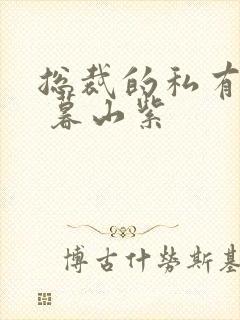 总裁的私有
暮山紫
博古什劳斯基